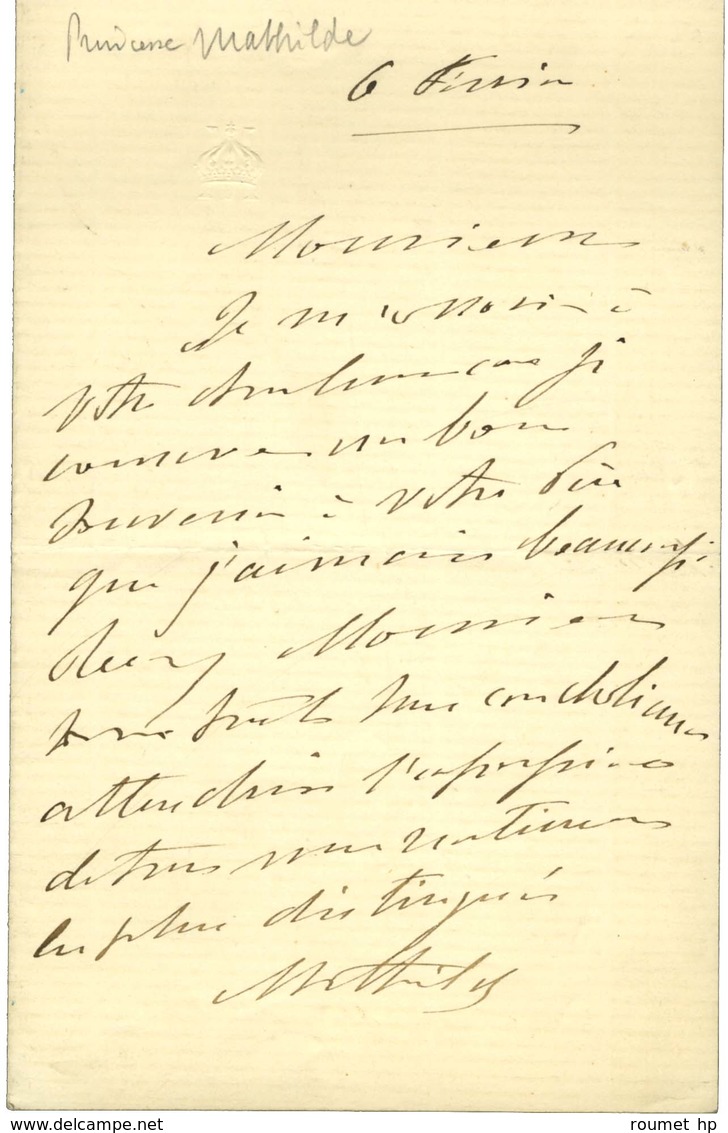 Princesse Mathilde
6 Février
Monsieur
Je m'associe à
votre douleur car je
conserve un bon
souvenir à votre Père
que j'aimais beaucoup.
Monsieur
condoléances
attendries l'expression
de tous mes sentiments
les plus distingués
Mathilde
roumet hp